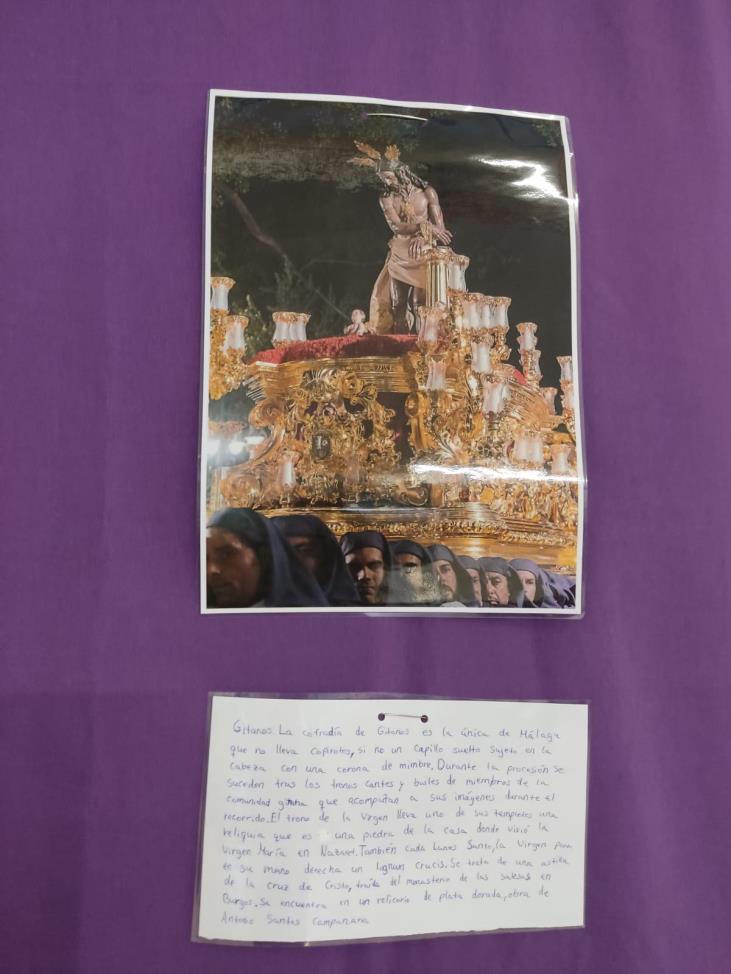 Gitanos: La cofradía de Gitanos es la única de Málaga
que no lleva capirotes, si no un capillo suelto sujeto en la
cabeza con una corona de mimbre. Durante la procesión se
suceden tras los tronos cantes y bailes de miembros de la
comunidad gitana que acompañan a sus imágenes durante el
recorrido. El trono de la Virgen lleva uno de sus templetes una
reliquia que es una piedra de la casa donde vivió la
Virgen María en Nazaret. También cada Lunes Santo, la Virgen porta
en su mano derecha un lignun crucis. Se trata de una astilla
de la cruz de Cristo, traída del monasterio de las salesas en
Burgos. Se encuentra en un relicario de plata dorada, obra de
Antonio Santos Campanario